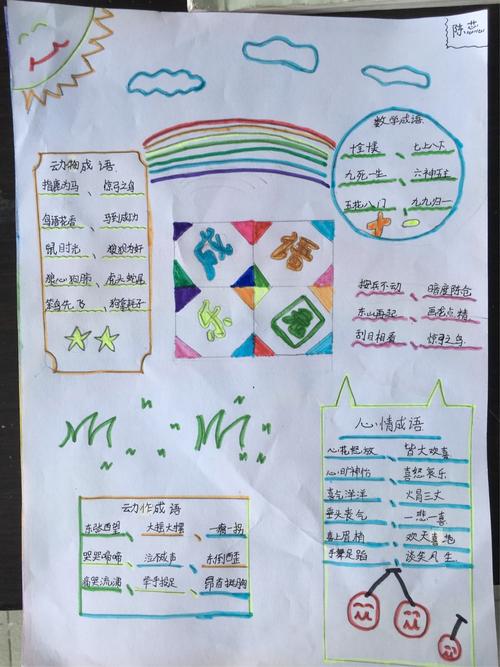 陈蕊
数学成语
十全十美 七上八下
九死一生、六神无主
五花八门 九九归一
动物成语
指鹿为马、惊弓之鸟
鸟语花香、马到成功
鼠目寸光、狼狈为奸
狼心狗肺、虎头蛇尾
笨鸟先飞、狗拿耗子
成语
乐园
按兵不动、暗度陈仓
东山再起、画龙点睛
刮目相看、惊弓之鸟
心情成语
心花怒放、皆大欢喜
心旷神怡、喜怒哀乐
喜气洋洋、火冒三丈
垂头丧气、一悲一喜
喜上眉梢、欢天喜地
手舞足蹈、谈笑风生
动作成语
东张西望、大摇大摆、一瘸一拐
哭哭啼啼、泣不成声、东倒西歪
痛哭流涕、举手投足、昂首挺胸